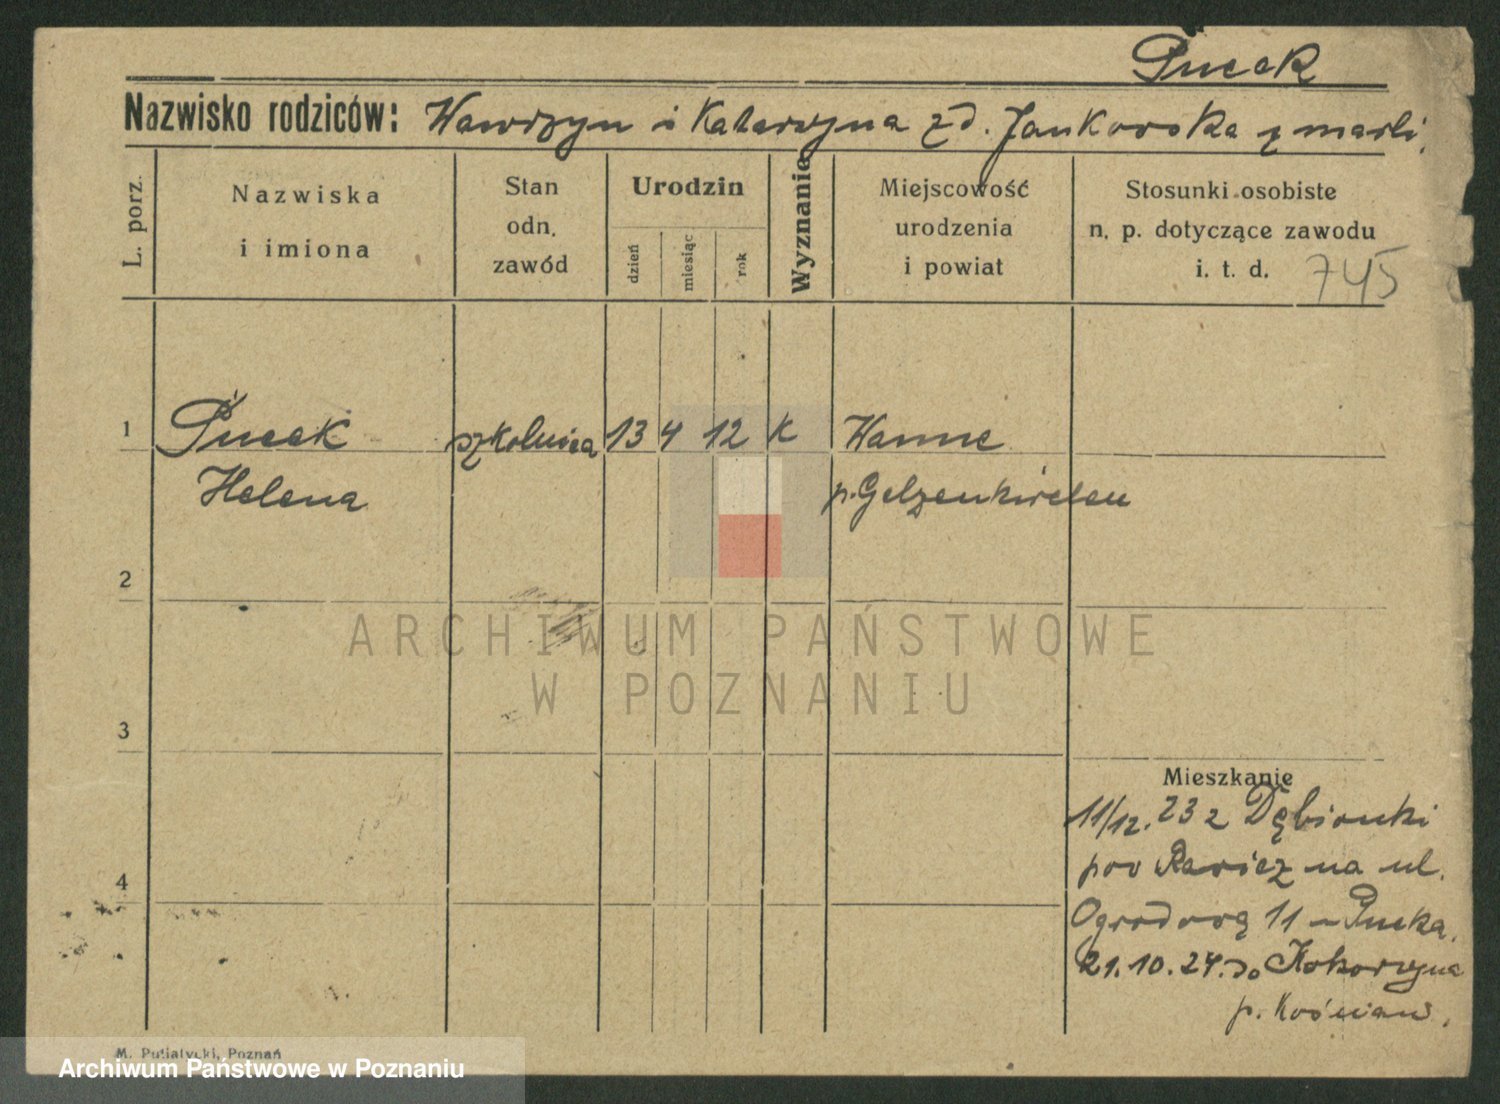 Ptucek
Nazwisko rodziców: Wawrzyn i Katarzyna zd. Jankowska zmarli.
L. porz.
Nazwiska
i imiona
Stan
odn.
zawód
Urodzin
dzień
miesiąc
rok
Wyznanie
Miejscowość
urodzenia
i powiat
Stosunki osobiste
n. p. dotyczące zawodu
i. t. d.
745
1
szkolnica 13 4 12 K Wanne
Helena p. Gelzenkirchen
2
ARCHIWUM PAŃSTWOWE
W POZNANIU
3
Mieszkanie
11/12. 23 z Dębionki
pow Rawicz na ul.
4
Ogrodową 11
21.10.24. do Kokorzyna
p. Kościan.
M. Putiatycki, Poznań
Archiwum Państwowe w Poznaniu